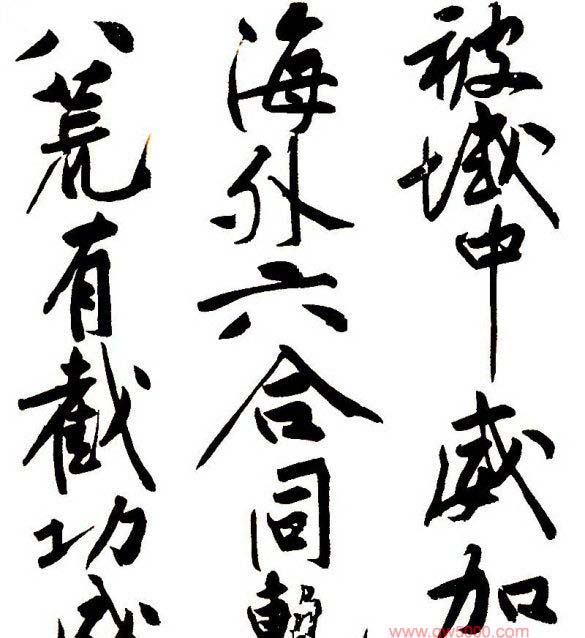 被域中威加
海外六合同
八荒有截功成